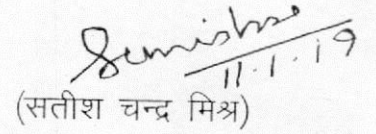 Scmishra
11.1.19
(सतीश चन्द्र मिश्र)